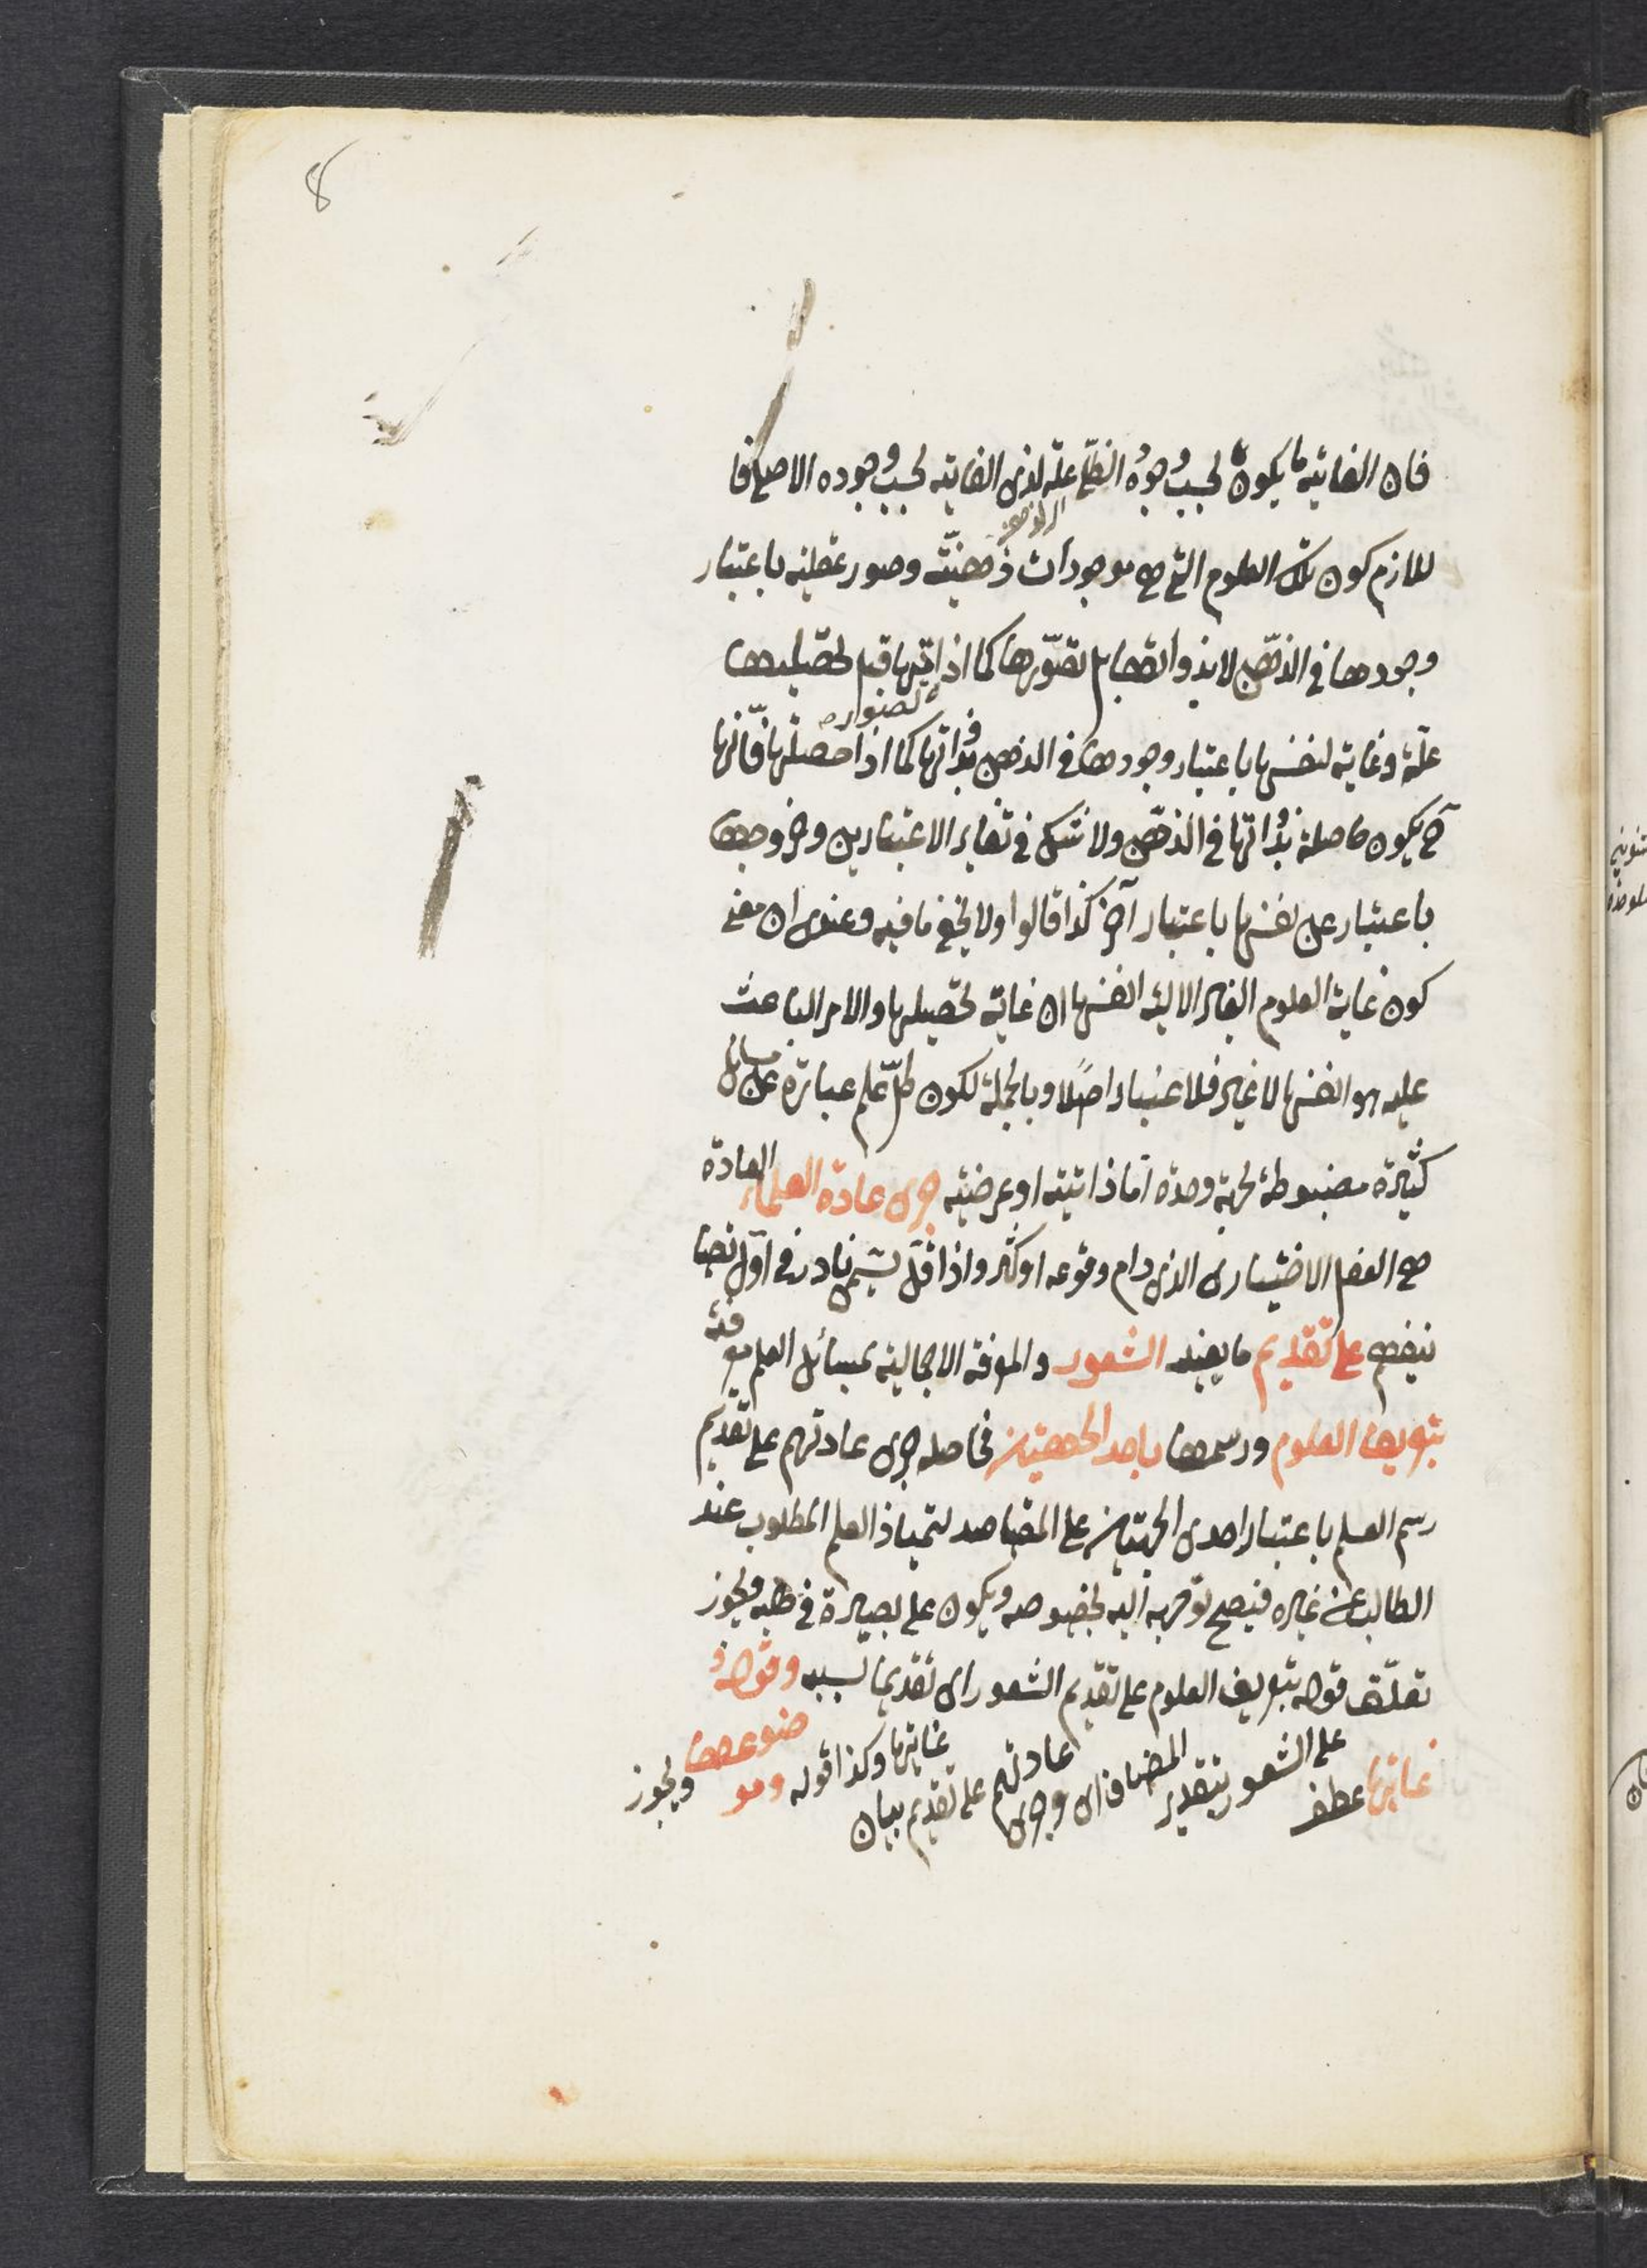 8
فان الغاية ما يكون بحسب وجوده الظلي علة لذي الغاية بحسب وجوده الاصلي فا
للازم كون تلك العلوم التي هي موجودات ذهنية وصور عقلية باعتبار
وجودها في الذهن لا بذواتها بل بتصورها كما اذا قبل تحصيلها
علة وغاية لنفسها باعتبار وجودها في الذهن بذواتها كما اذا حصلها فانها
ح يكون حاصلة بذواتها في الذهن ولا شك في تغاير الاعتبارين وخروجها
باعتبار عن نفسها باعتبار آخر كذا قالوا ولا يخفى ما فيه وعندي ان معنى
كون غاية العلوم الغير الالية انفسها ان غاية تحصيلها والامر الباعث
عليه هو انفسها لا غير فلا اعتبار اصلا وبالجملة لكون كل علم عبارة عن مسائل
كثيرة مضبوطة بجهة وحدة اما ذاتية او عرضية جرى عادة العلماء العادة
هي الفعل الاختياري الذي دام وقوعه او كثر واذا قل يسمى نادر في اول
على تقديم ما يفيد الشعور والمعرفة الاجمالية بمسائل العلم معرفة
بتعريف العلوم ورسمها باحد الجهتين فحاصله جرى عادتهم على تقديم
رسم العلم باعتبار احدى الجهتين على المقاصد لتمياز العلم المطلوب عند
الطالب عن غيره فيصح توجهه اليه بخصوصه ويكون على بصيرة في طلبه ويجوز
تعلق قوله بتعريف العلوم على تقديم الشعور اى تقديما بسببه وقوله و
غايتها عطف على الشعور بتقدير المضاف اى وجرى عادتهم على تقديم بيان غايتها وكذا قوله وموضوعها ويجوز